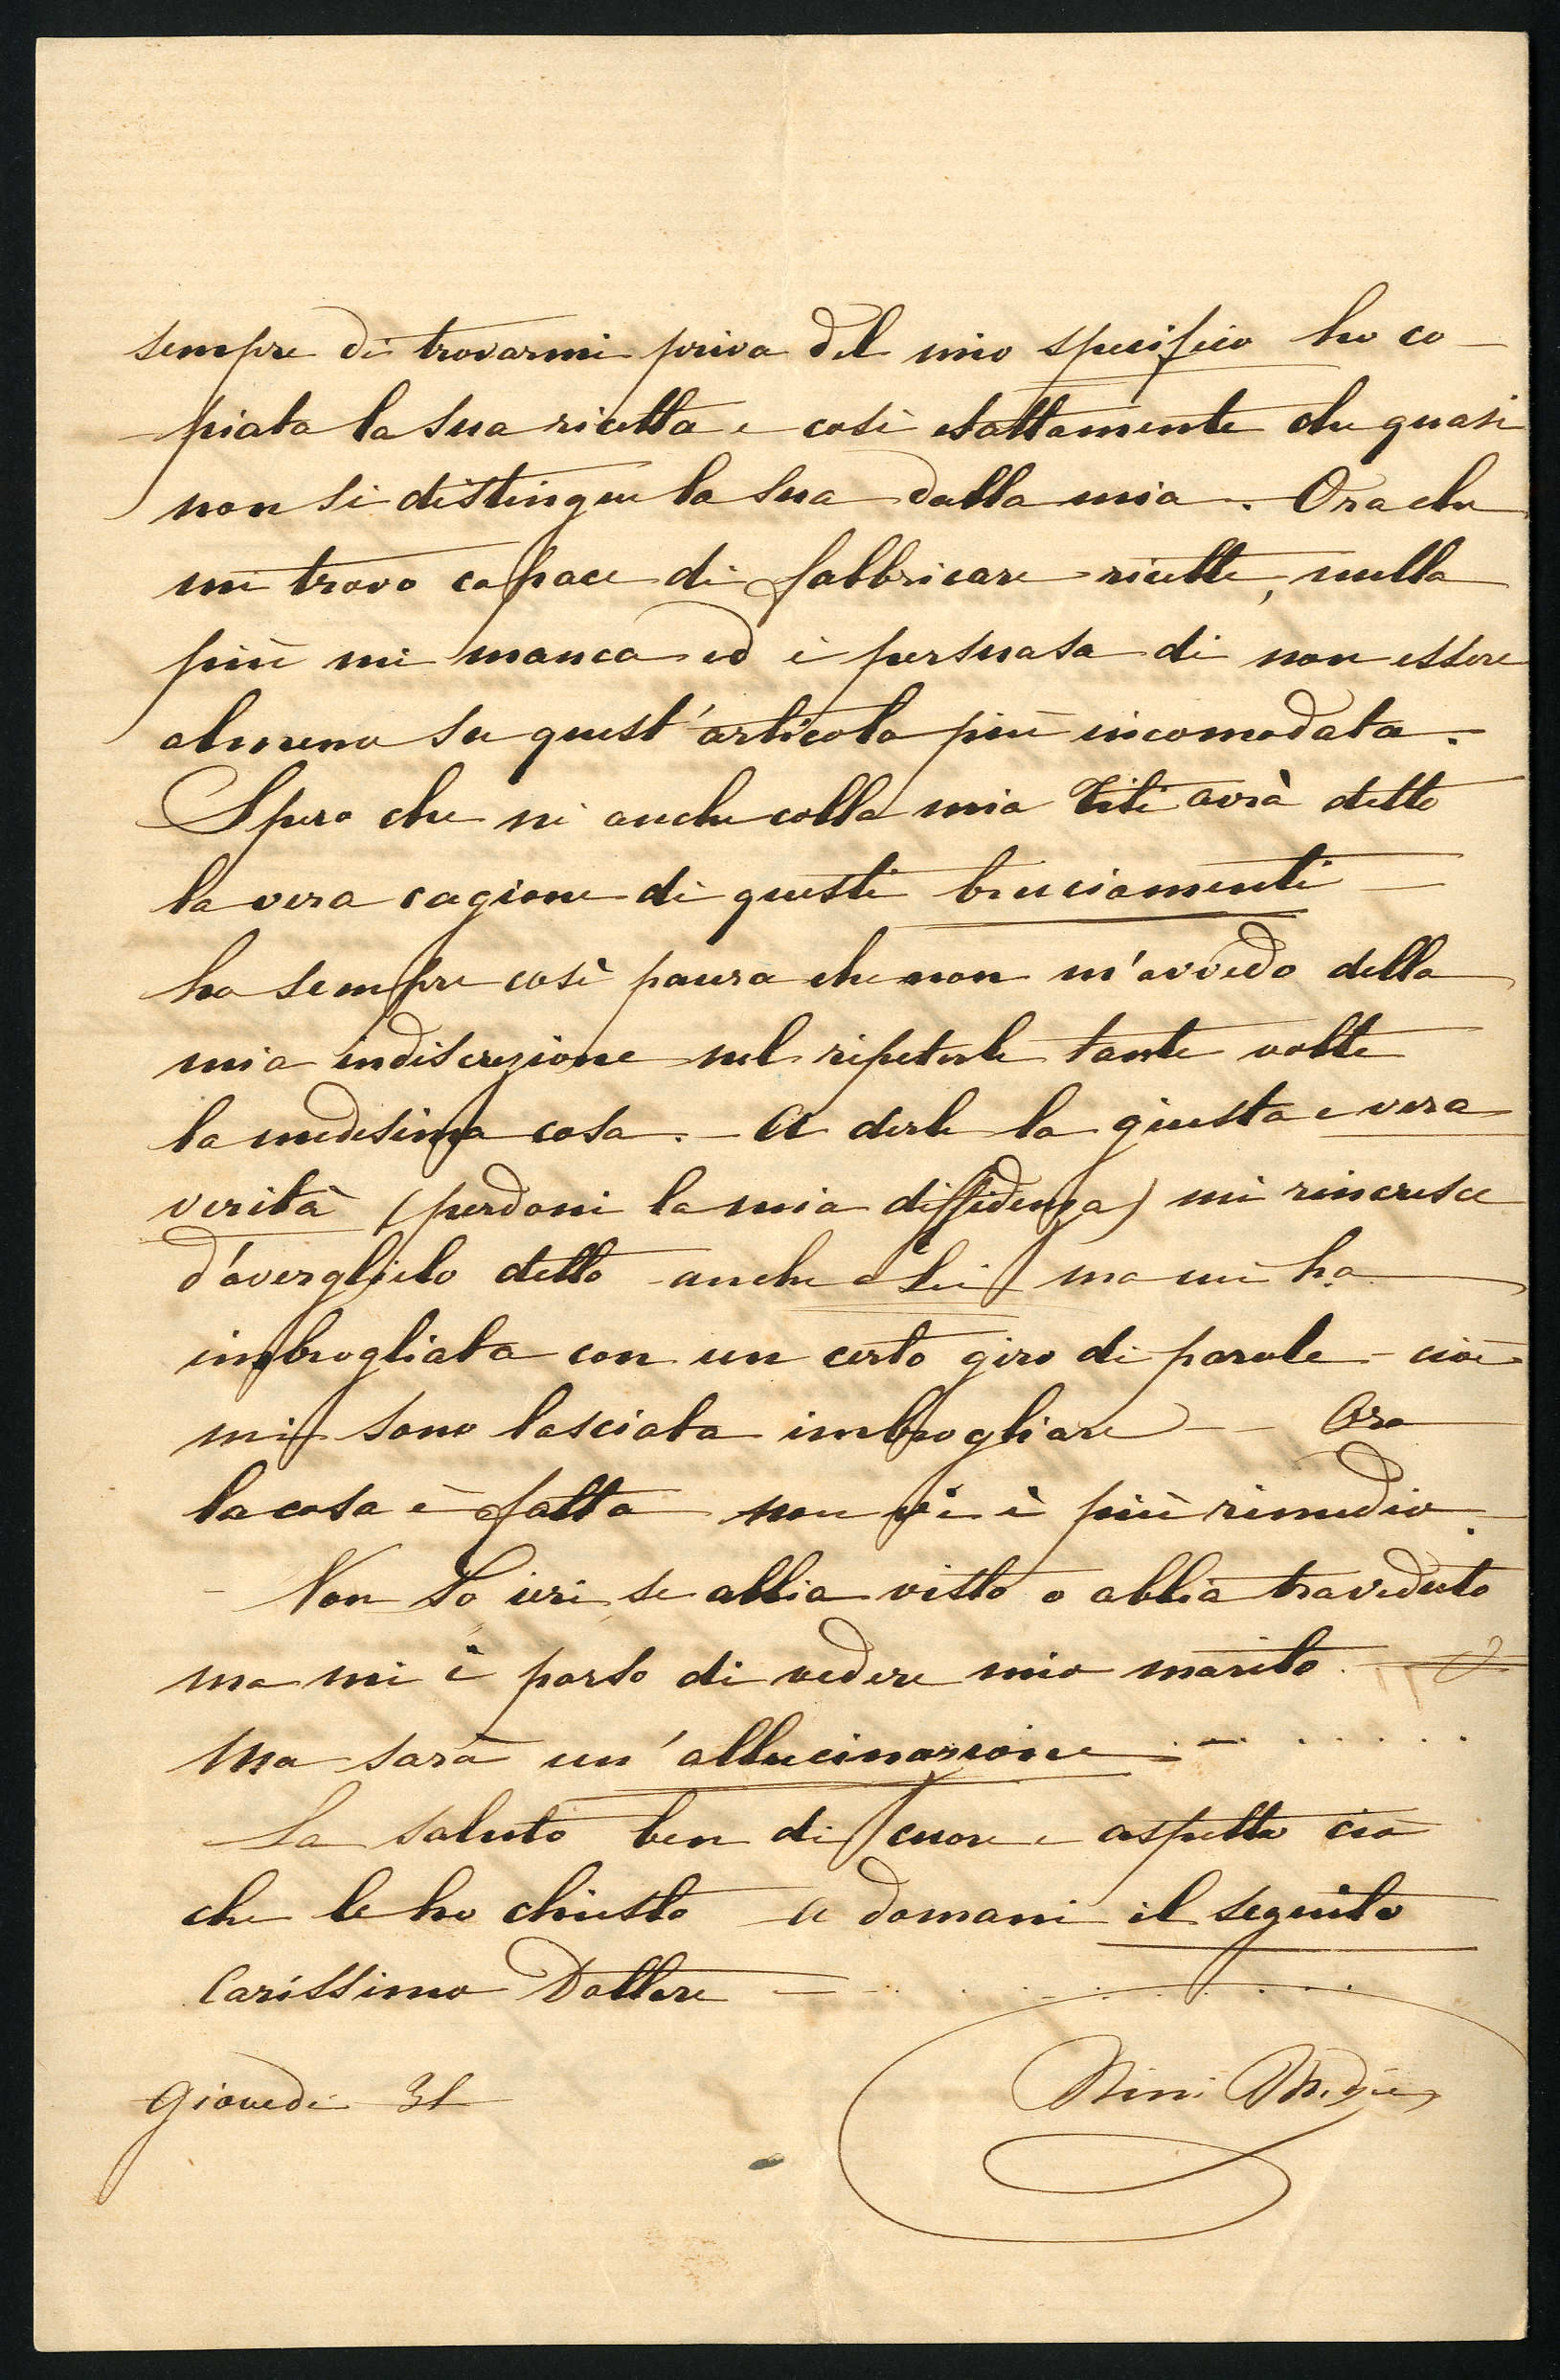 sempre di trovarmi priva del mio specifico ho co-
piata la sua ricetta e così esattamente che quasi
non si distingue la sua dalla mia. Ora che
mi trovo capace di fabbricare ricette, nulla
più mi manca ed è persuasa di non essere
almeno su quest'articolo più incomodata.
Spero che nè anche colla mia Titì avrà detto
la vera cagione di questi bruciamenti —
ho sempre così paura che non m'avvedo della
mia indiscrezione nel ripeterle tante volte
la medesima cosa. - A dirle la giusta e vera
verità (perdoni la mia diffidenza) mi rincresce
d'averglielo detto anche a Lei ma mi ha
imbrogliata con un certo giro di parole - cioè
mi sono lasciata imbrogliare - - Ora
la cosa è fatta non vi è più rimedio.
- Non so ieri se abbia visto o abbia traveduto
ma mi è parso di vedere mio marito
Ma sarà un'allucinazione - . . . . .
La saluto ben di cuore e aspetto ciò
che le ho chiesto a domani il seguito
Carissimo Dottore — . . . . . . . .
Giovedì 31
Ninì